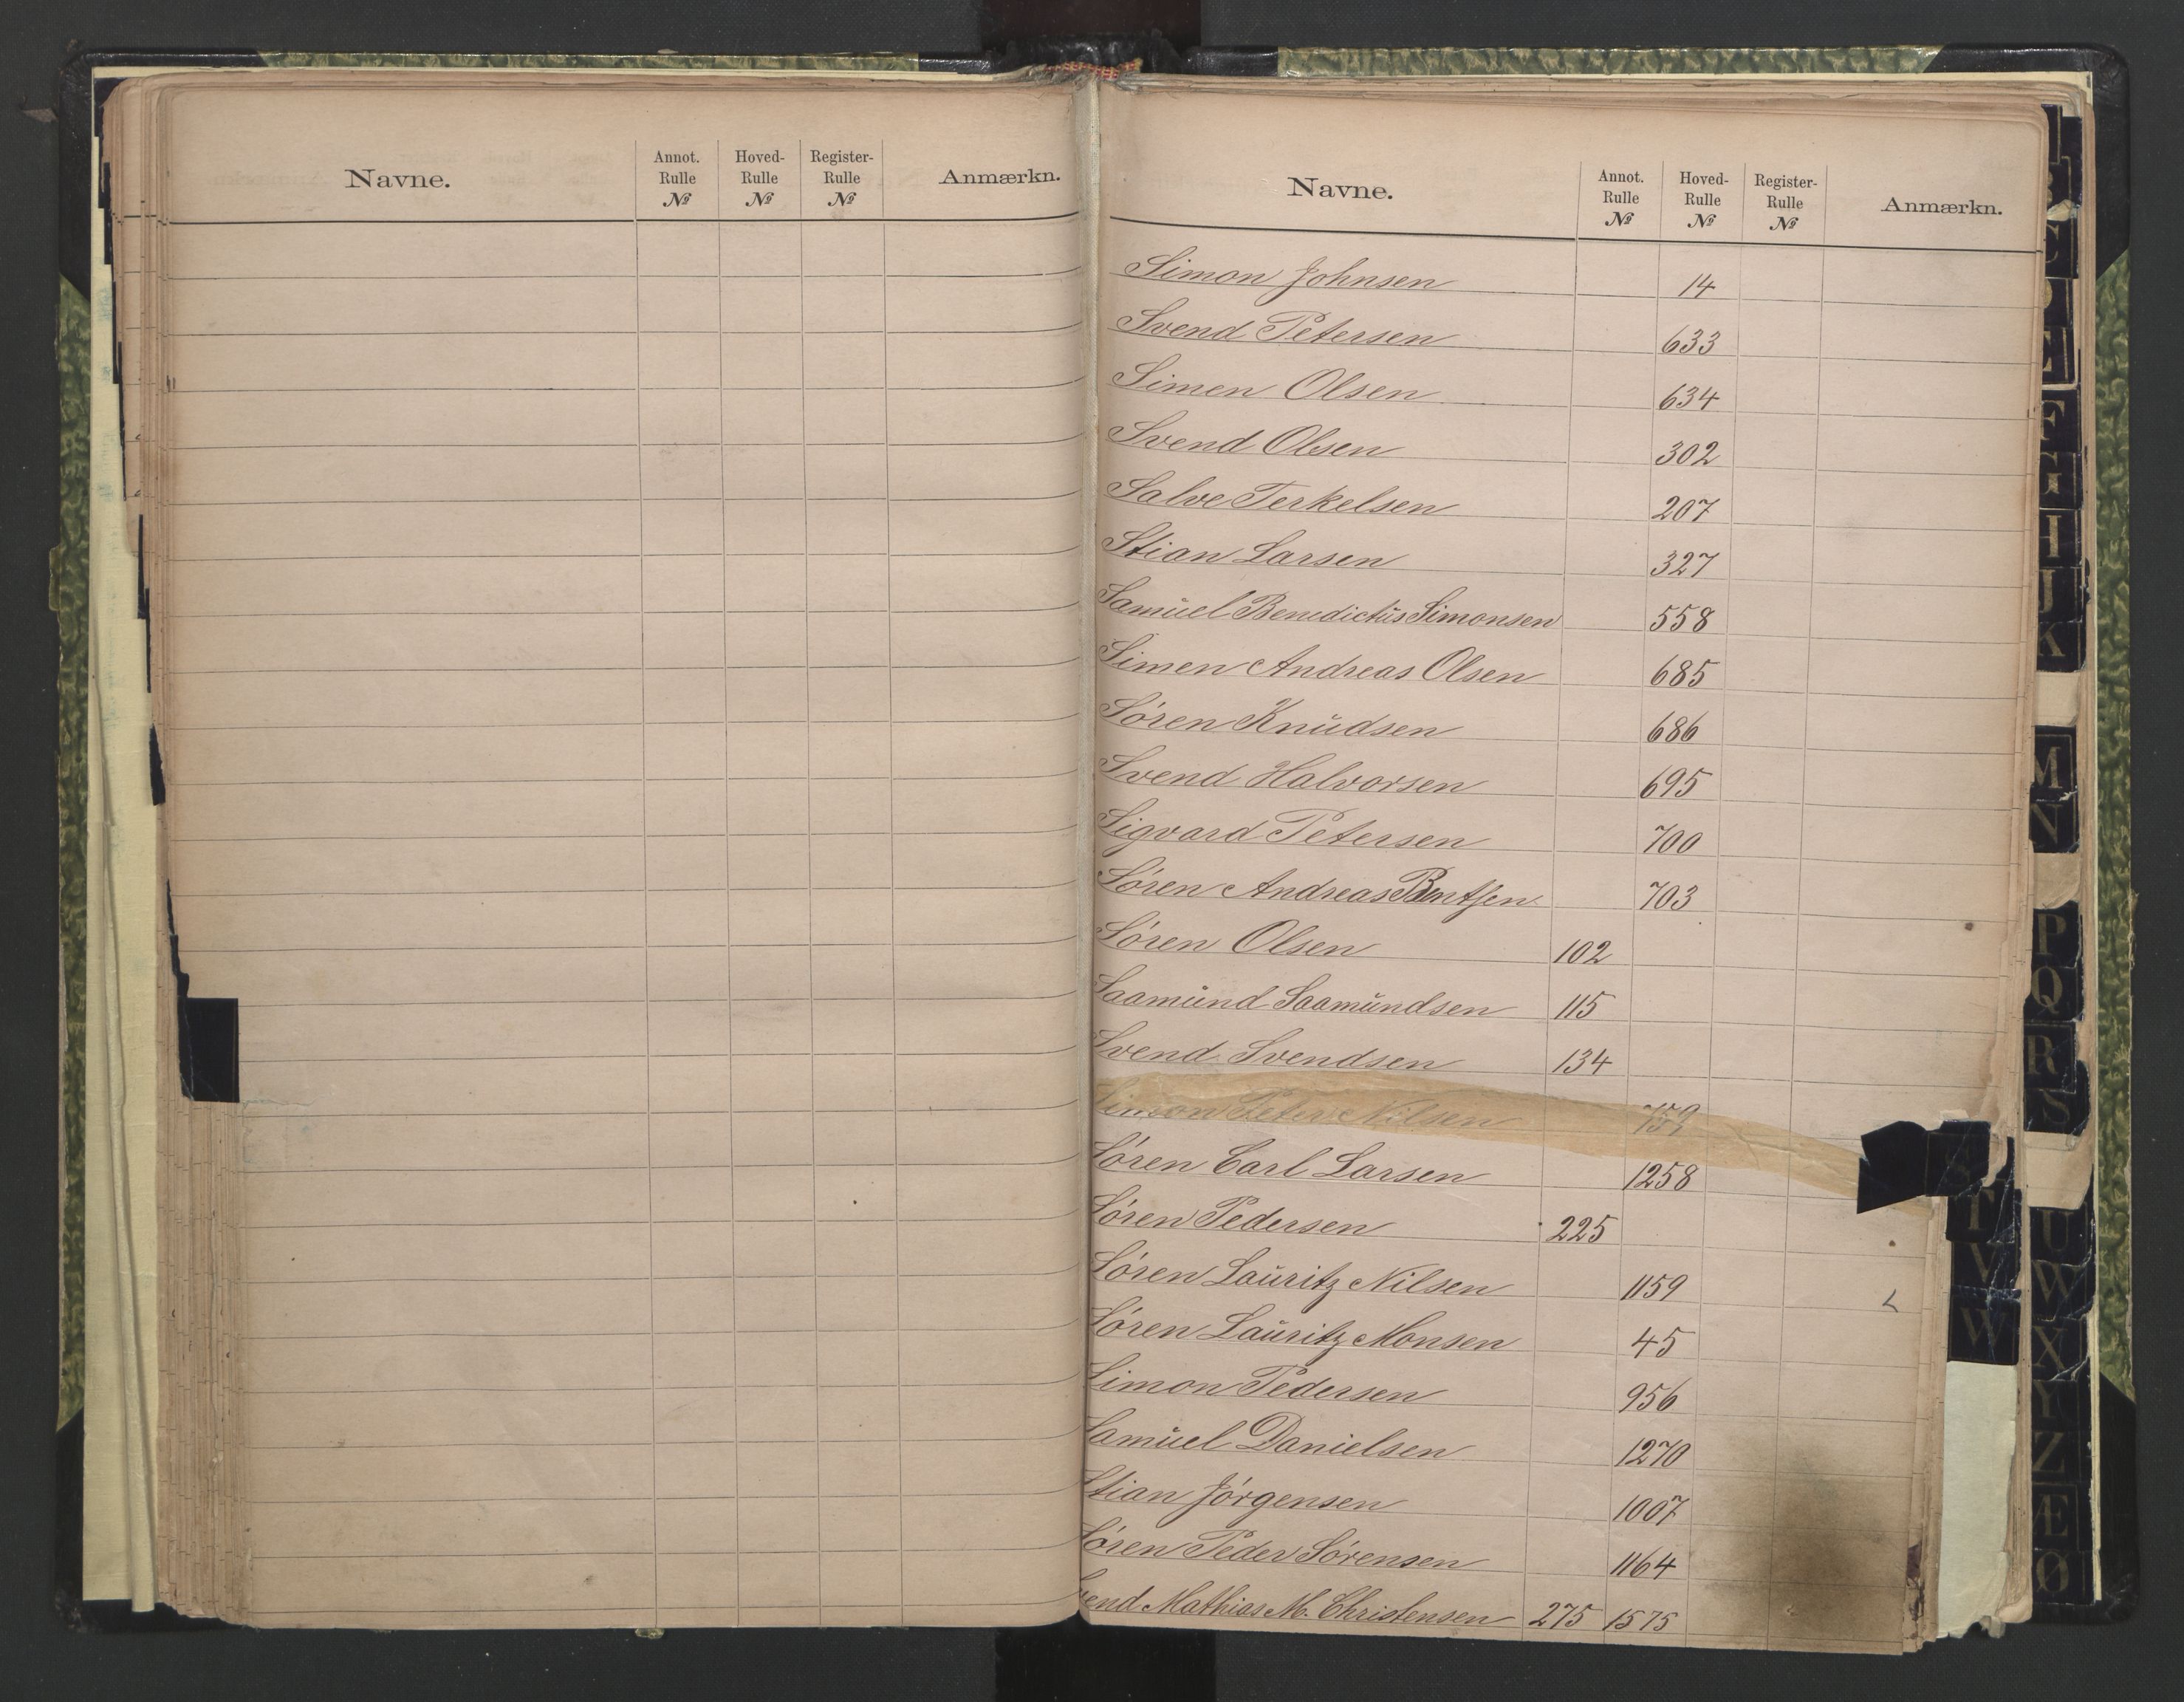 Navne. Annot. Rulle № Hoved- Rulle № Register- Rulle № Anmærkn.
Navne. Annot. Rulle № Hoved- Rulle № Register- Rulle № Anmærkn.
Simon Johnsen 14
Svend Petersen 633
Simen Olsen 634
Svend Olsen 302
Salve Terkelsen 207
Stian Larsen 327
Samuel Benedictus Simonsen 558
Simen Andreas Olsen 685
Sören Knudsen 686
Svend Halvorsen 695
Sigvard Petersen 700
Sören Andreas Berntsen 703
Sören Olsen 102
Saamund Saamundsen 115
Svend Svendsen 134
Simon Peter Nilsen 759
Sören Carl Larsen 1258
Sören Pedersen 225
Sören Lauritz Nilsen 1159
Sören Lauritz Monsen 45
Simon Pedersen 956
Samuel Danielsen 1270
Stian Jörgensen 1007
Sören Peder Sörensen 1164
Svend Mathias M. Christensen 275 1575
B
C
D
E
F
G
H
J
K
M
N
P
Q
R
S
T
U
V
W
W
X
Y
Z
Æ
Ø